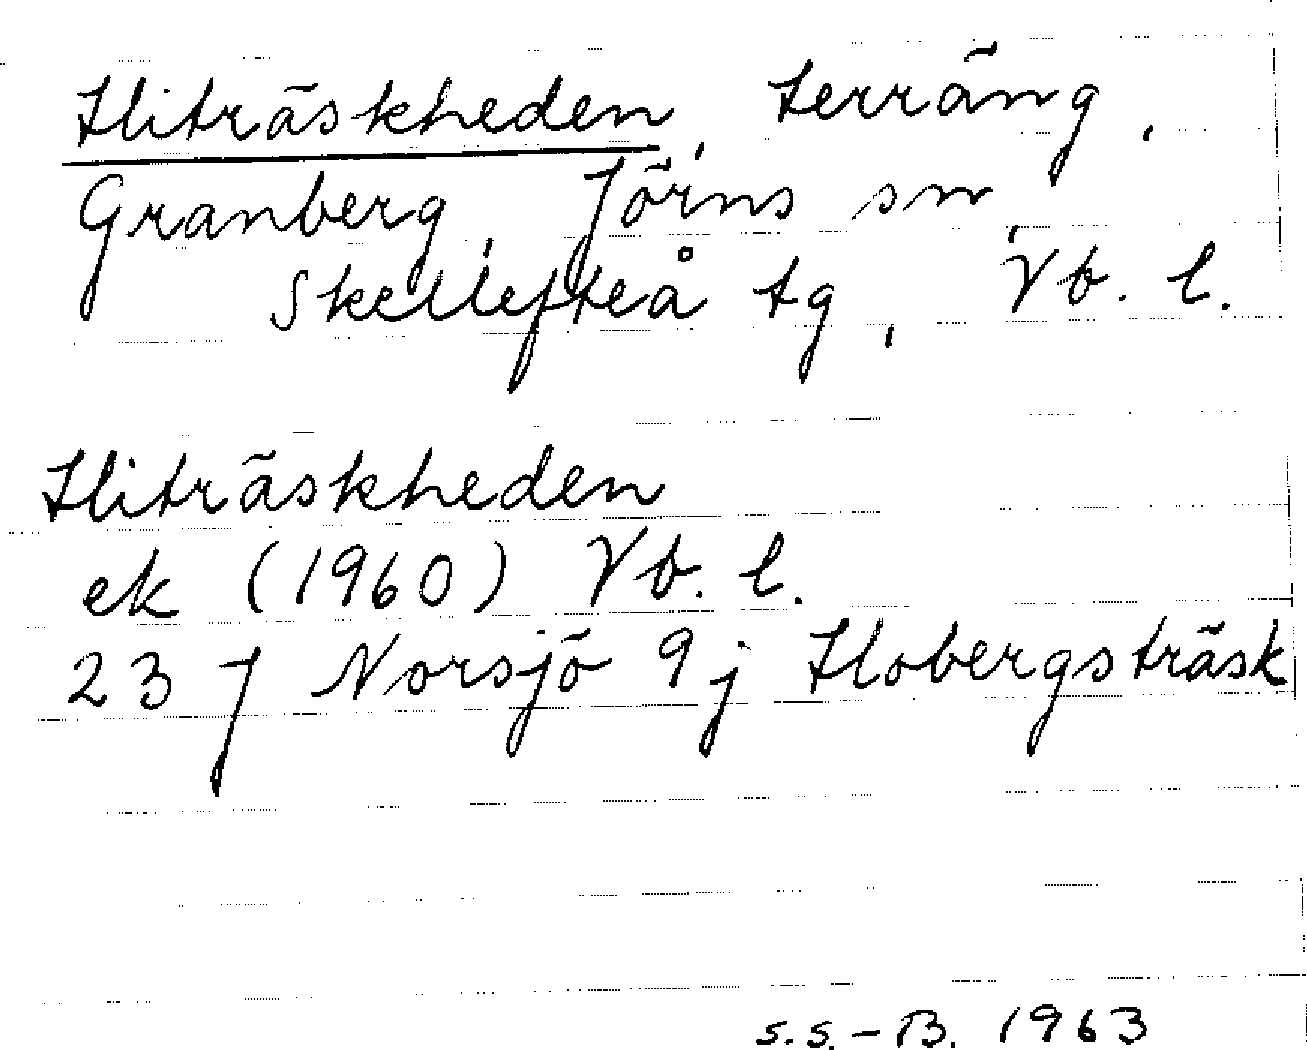 Hiträskheden, terräng,
Granberg, Jörns sn,
Skellefteå tg, Vb. l.
Hiträskheden
ek (1960) Vb. l.
23 J Norsjö 9j Hobergsträsk
S.S.-B. 1963